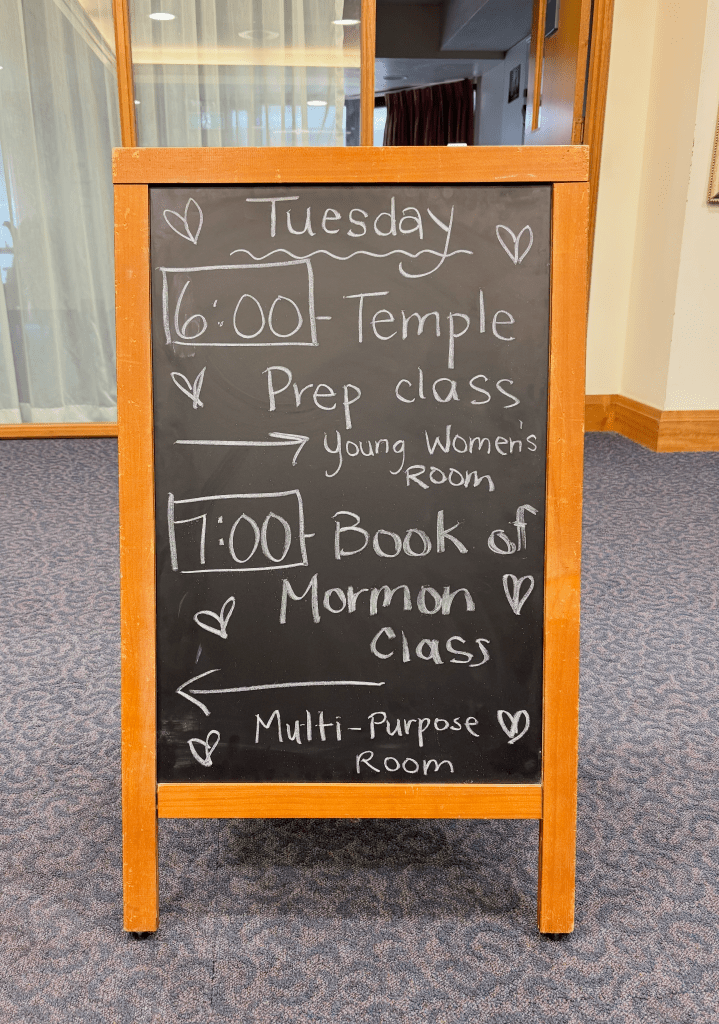 Tuesday
6:00 - Temple
Prep class
Young Women's
Room
7:00 - Book of
Mormon
Class
Multi-Purpose
Room